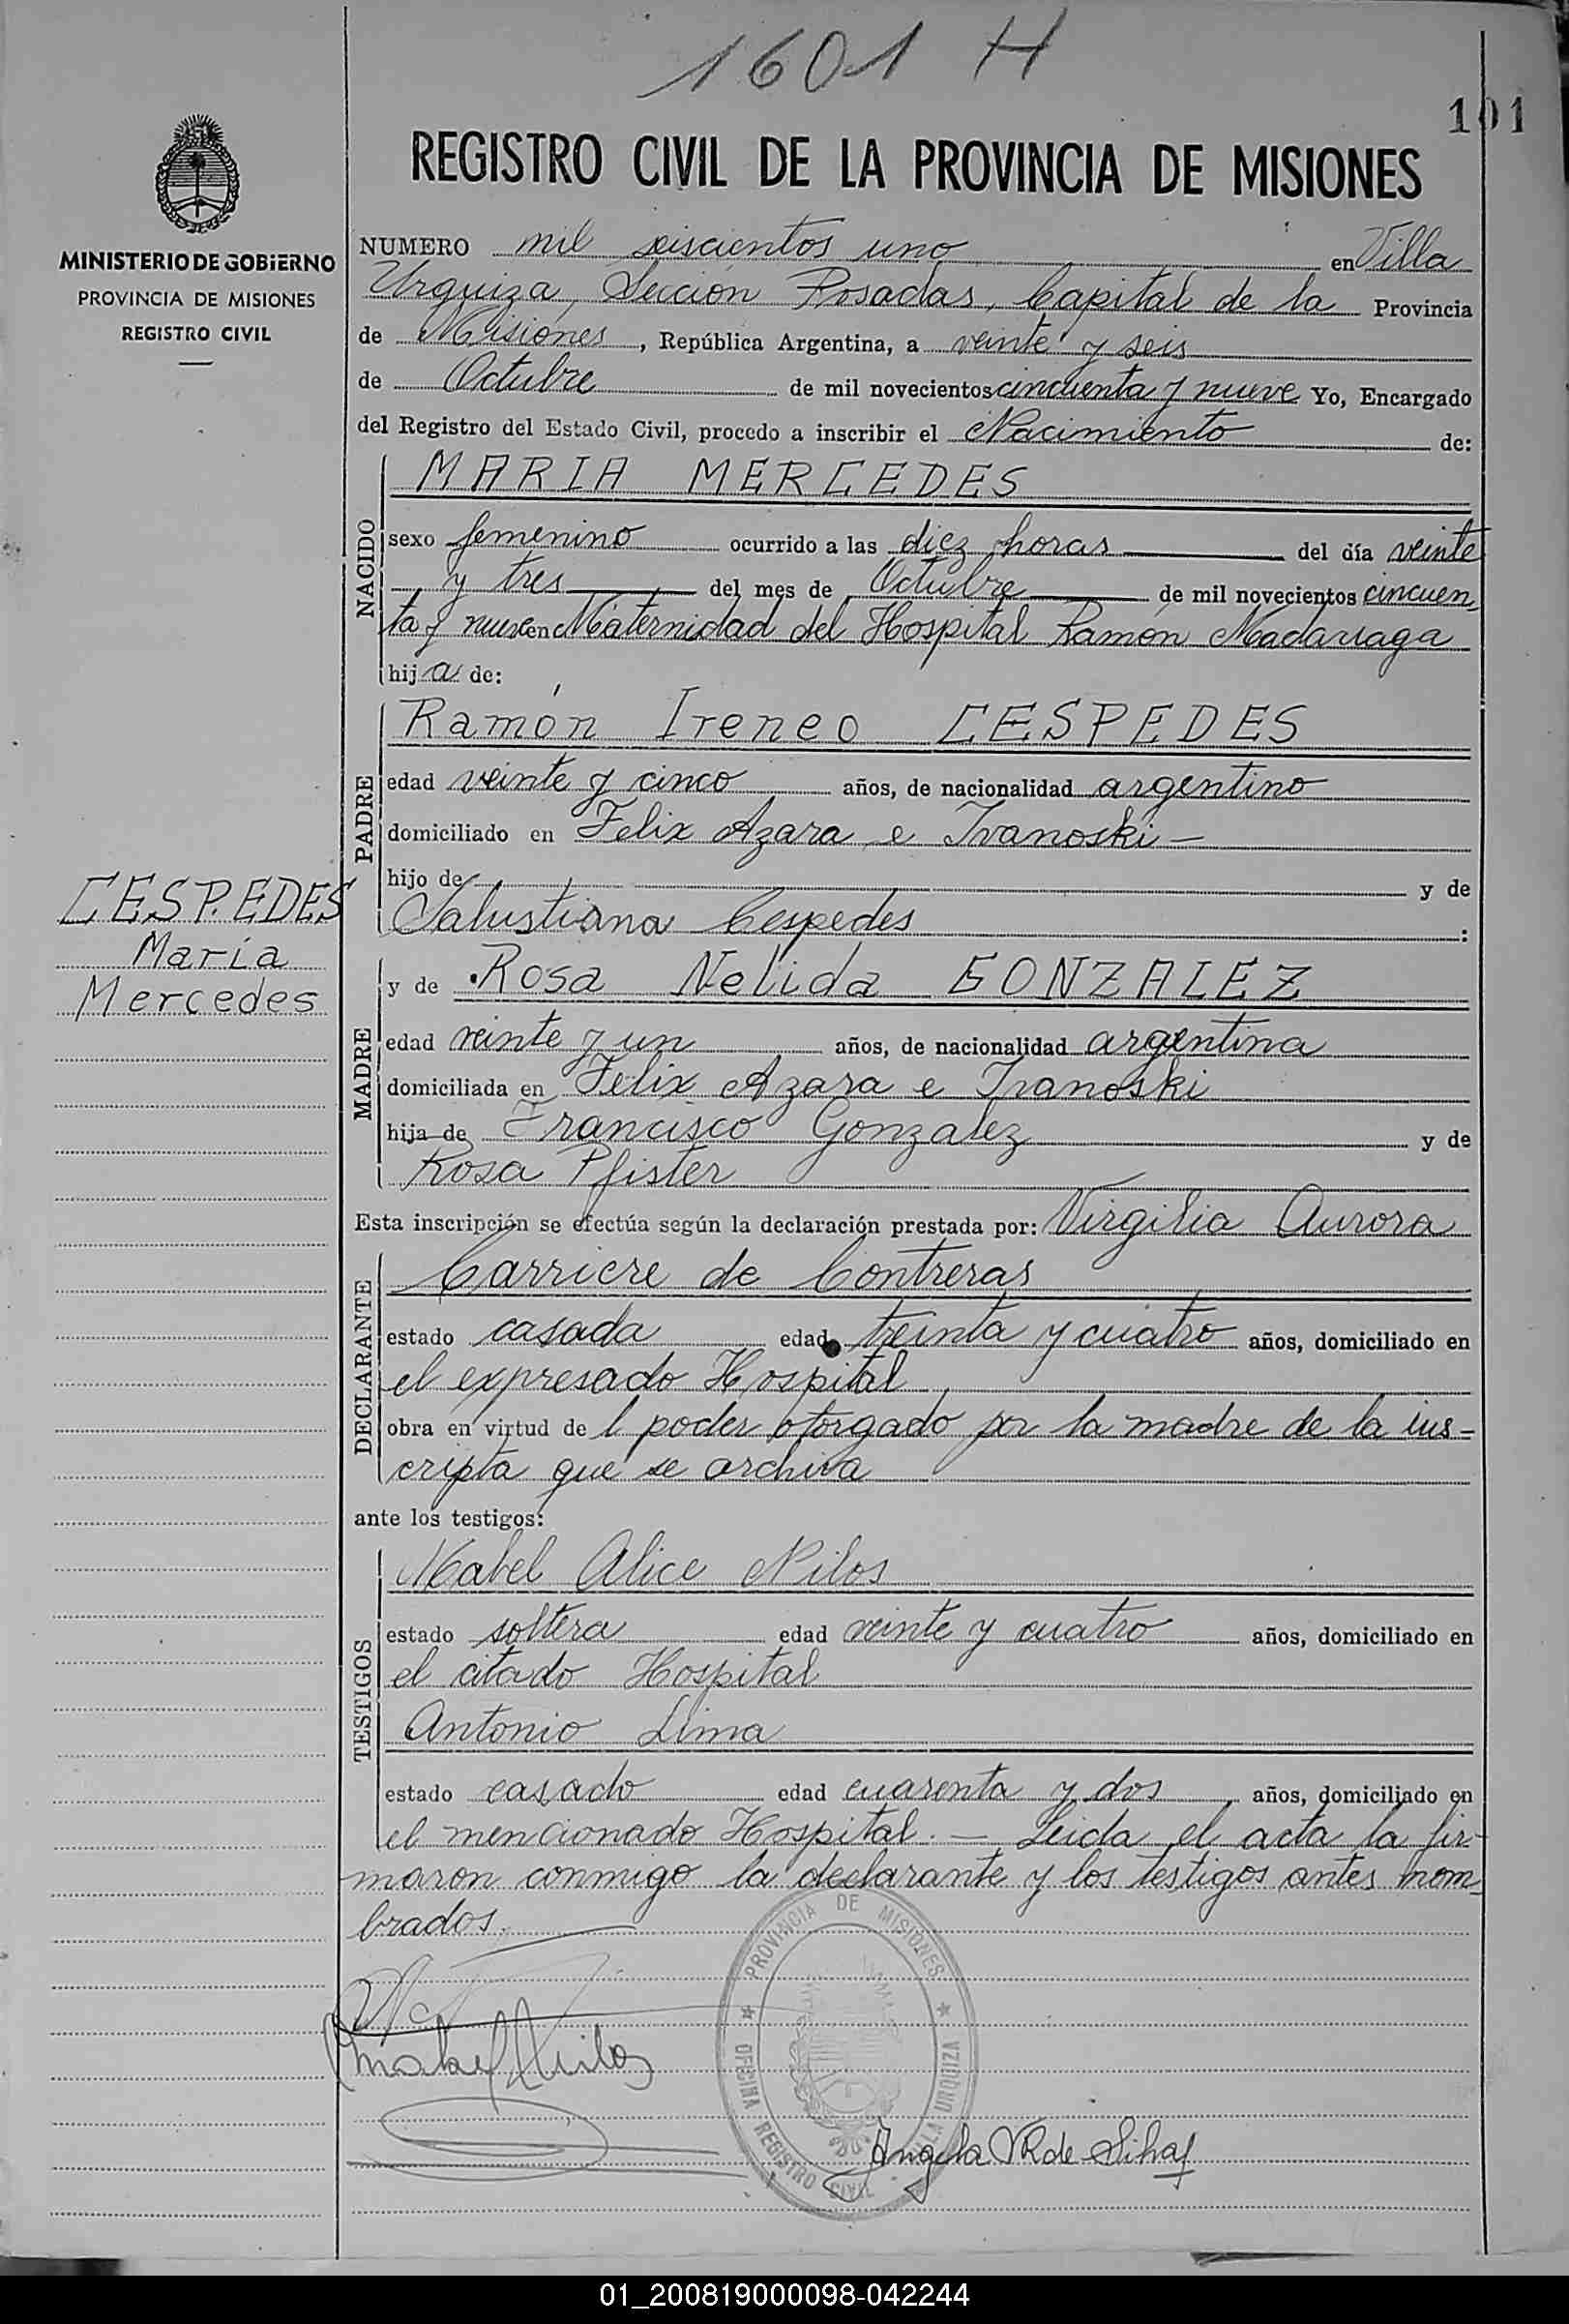 1601 H
101
REGISTRO CIVIL DE LA PROVINCIA DE MISIONES
MINISTERIO DE GOBIERNO
PROVINCIA DE MISIONES
REGISTRO CIVIL
NUMERO mil seiscientos uno en Villa
Urquiza, Sección Posadas, Capital de la Provincia
de Misiones, República Argentina, a veinte y seis
de Octubre de mil novecientos cincuenta y nueve Yo, Encargado
del Registro del Estado Civil, procedo a inscribir el Nacimiento de:
NACIDO
MARIA MERCEDES
sexo femenino ocurrido a las diez horas del día veinte
y tres del mes de Octubre de mil novecientos cincuen
ta y nueve en Maternidad del Hospital Ramón Madariaga
hija de:
PADRE
Ramón Ireneo CESPEDES
edad veinte y cinco años, de nacionalidad argentino
domiciliado en Felix Azara e Ivanoski -
hijo de y de
Salustiana Cespedes :
CESPEDES
María
Mercedes
MADRE
y de Rosa Nelida GONZALEZ
edad veinte y un años, de nacionalidad argentina
domiciliada en Felix Azara e Ivanoski
hija de Francisco Gonzalez y de
Rosa Pfister
Esta inscripción se efectúa según la declaración prestada por: Virgilia Aurora
DECLARANTE
Carriere de Contreras
estado casada edad treinta y cuatro años, domiciliado en
el expresado Hospital
obra en virtud de l poder otorgado por la madre de la ins-
cripta que se archiva
ante los testigos:
TESTIGOS
Mabel Alice Nilos
estado soltera edad veinte y cuatro años, domiciliado en
el citado Hospital
Antonio Lima
estado casado edad cuarenta y dos años, domiciliado en
el mencionado Hospital. - Leida el acta la fir-
maron conmigo la declarante y los testigos antes nom
brados.
PROVINCIA DE MISIONES
OFICINA REGISTRO CIVIL VILLA URQUIZA
Mabel Nilos
Angela
01_200819000098-042244